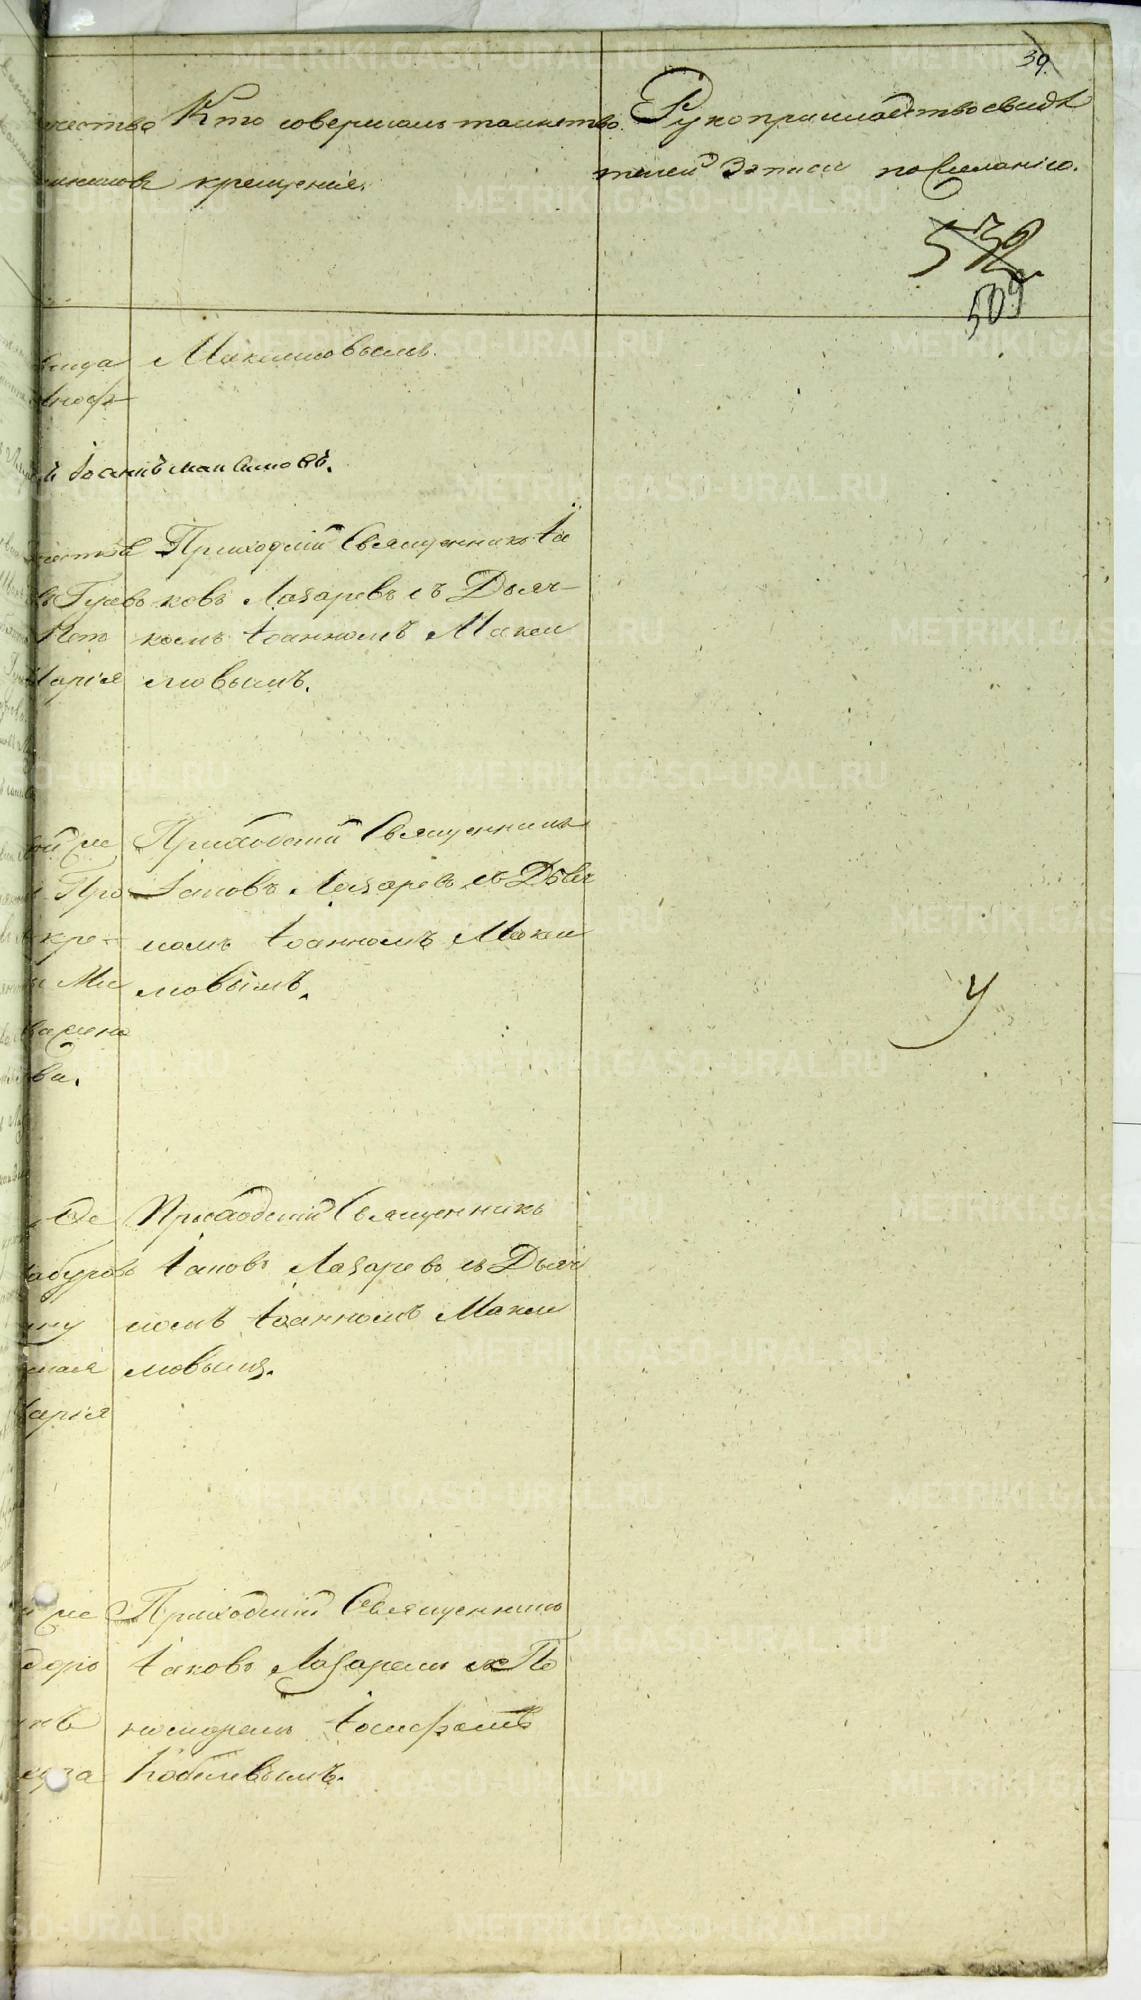 39.
чества Кто совершалъ таинство Рукоприкладство свидѣ
крещенія. телей записи по желанію.
532
509
Максимовымъ.
Іоаннъ Максимовъ.
Приходскій Священникъ Іа
ковъ Лазаревъ съ Дьяч-
комъ Іоанномъ Макси
арія мовымъ.
ой же Приходскій Священникъ
Про Іаковъ Лазаревъ съ Дьяч
кре- комъ Іоанномъ Макси
мовымъ.
ва.
Приходскій Священникъ
Іаковъ Лазаревъ съ Дьяч
ну комъ Іоанномъ Макси
мовымъ.
арія
же Приходскій Священникъ
доръ Іаковъ Лазаревъ съ По
номаремъ Іосифомъ
Кобелевымъ.
METRIKI.GASO-URAL.RU